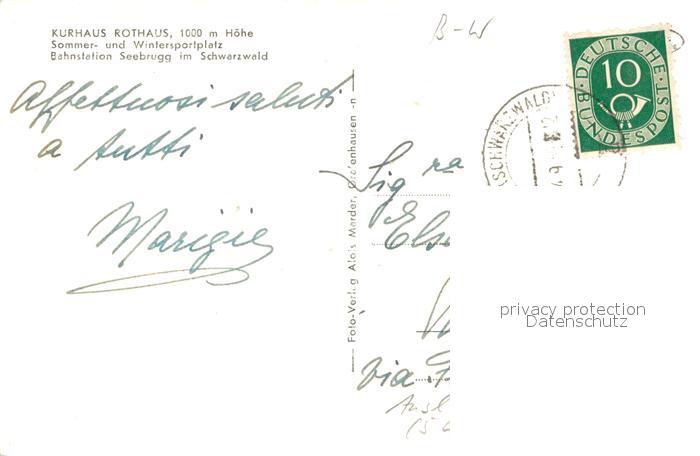 KURHAUS ROTHAUS, 1000 m Höhe
Sommer- und Wintersportplatz
Bahnstation Seebrugg im Schwarzwald
B-W
DEUTSCHE BUNDESPOST
10
(SCHWARZWALD)
Affettuosi saluti
a tutti
Marigie
Foto-Verlag Alois Morder, Grafenhausen
Sig ra
Els
Via
privacy protection
Datenschutz